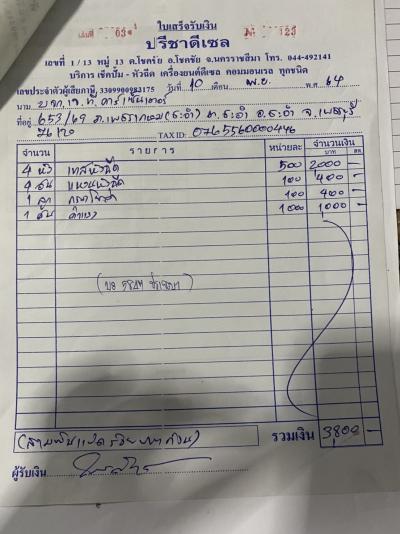 ใบเสร็จรับเงิน
ปรีชาดีเซล
เลขที่ 1 / 13 หมู่ 13 ต.โชคชัย อ.โชคชัย จ.นครราชสีมา โทร. 044-492141
บริการ เช็คปั๊ม - หัวฉีด เครื่องยนต์ดีเซล คอมมอนเรล ทุกชนิด
เลขประจำตัวผู้เสียภาษี 3309900983175 วันที่ 10 เดือน พ.ย. พ.ศ. 64
นาม
ที่อยู่ 653/69 ถ.เพชรเกษม(ชะอำ) ต.ชะอำ อ.ชะอำ จ.เพชรบุรี
76120 TAX ID: 0765560000446
จำนวน รายการ หน่วยละ จำนวนเงิน
บาท สต.
4 หัว เทสหัวฉีด 500 2000 -
4 อัน แหวนหัวฉีด 100 400 -
1 ลูก 400 -
1 คัน ค่าแรง 1000 1000 -
(สามพันแปดร้อยบาทถ้วน) รวมเงิน 3,800 -
ผู้รับเงิน